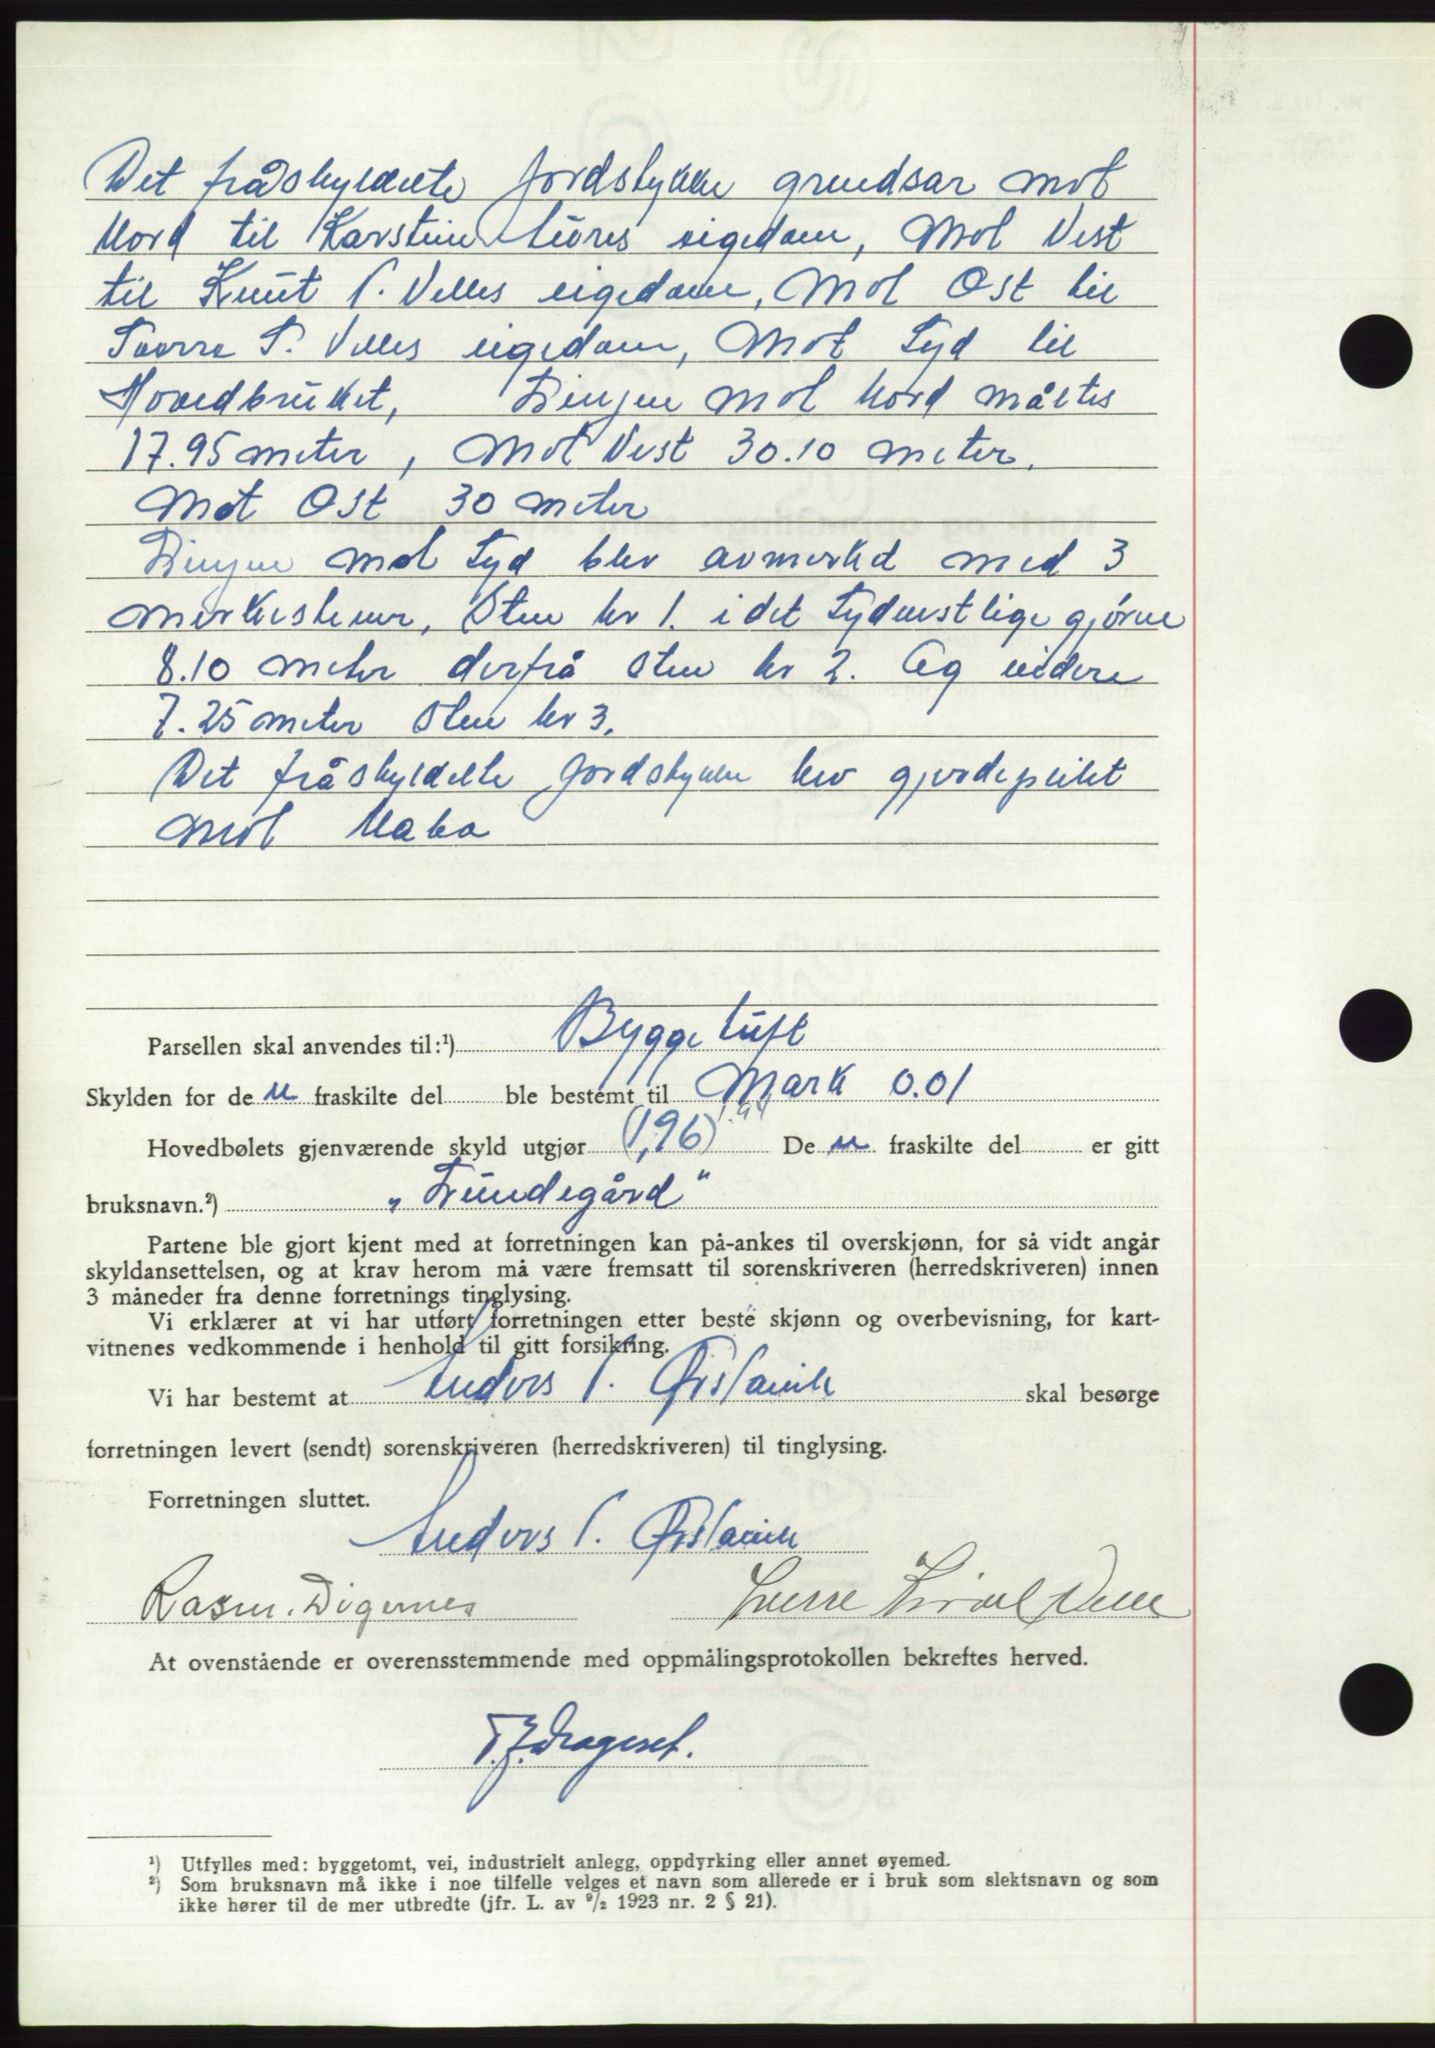 Det fråskyldelte Jordstykke grendsar mot
Nord til Karstein eigedom, Mot Vest
til Knut P. Velles eigedom, Mot Ost til
Sverre P. Velles eigedom, Mot Syd til
Hovedbruket, Linjen mot Nord måltes
17.95 meter, Mot Vest 30.10 meter.
Mot Ost 30 meter
Linjen mot Syd blev avmerked med 3
merkestener, Sten nr 1. i det Sydvestlige gjørne
8.10 meter derfrå Sten nr 2. Og videre
7.25 meter Sten nr 3.
Det fråskyldelte Jordstykke hev gjerdeplikt
mot Nabo
Parsellen skal anvendes til:¹) Bygge tuft
Skylden for de n fraskilte del ble bestemt til Mark 0.01
Hovedbølets gjenværende skyld utgjør (1,96) 1.94 De n fraskilte del er gitt
bruksnavn.²) „Lundegård"
Partene ble gjort kjent med at forretningen kan på-ankes til overskjønn, for så vidt angår
skyldansettelsen, og at krav herom må være fremsatt til sorenskriveren (herredskriveren) innen
3 måneder fra denne forretnings tinglysing.
Vi erklærer at vi har utført forretningen etter beste skjønn og overbevisning, for kart-
vitnenes vedkommende i henhold til gitt forsikring.
Vi har bestemt at Anders P. Ørstavik skal besørge
forretningen levert (sendt) sorenskriveren (herredskriveren) til tinglysing.
Forretningen sluttet.
Anders P. Ørstavik
Rasm. Digernes Sverre Velle
At ovenstående er overensstemmende med oppmålingsprotokollen bekreftes herved.
T. J. Drageset.
¹) Utfylles med: byggetomt, vei, industrielt anlegg, oppdyrking eller annet øyemed.
²) Som bruksnavn må ikke i noe tilfelle velges et navn som allerede er i bruk som slektsnavn og som
ikke hører til de mer utbredte (jfr. L. av ⁹/₂ 1923 nr. 2 § 21).